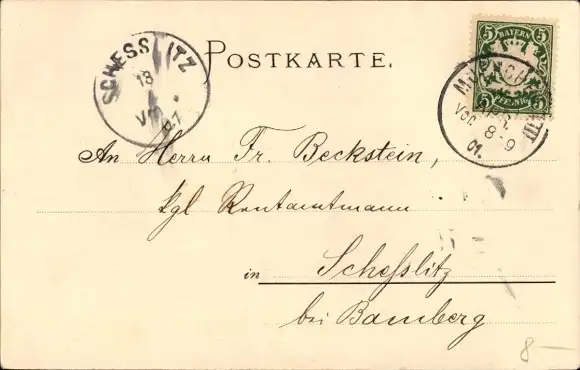 POSTKARTE.
SCHESSLITZ
13
5 BAYERN 5
5 PFENNIG 5
VOR.
8-9
01.
An Herrn Fr. Beckstein,
kgl Rentamtmann
in Scheßlitz
bei Bamberg
8-